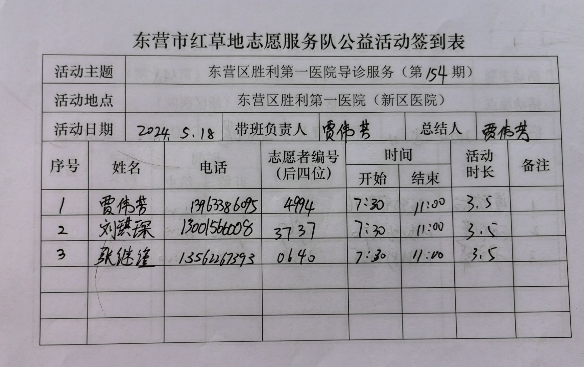 东营市红草地志愿服务队公益活动签到表
活动主题 东营区胜利第一医院导诊服务（第154期）
活动地点 东营区胜利第一医院（新区医院）
活动日期 2024.5.18 带班负责人 贾伟芳 总结人 贾伟芳
序号 姓名 电话 志愿者编号（后四位） 时间 开始 结束 活动时长 备注
1 贾伟芳 13963386095 4994 7:30 11:00 3.5
2 刘 琛 13001566008 3737 7:30 11:00 3.5
3 张继 13562267393 0640 7:30 11:00 3.5